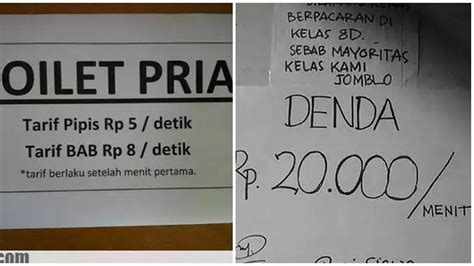 OILET PRIA
Tarif Pipis Rp 5 / detik
Tarif BAB Rp 8 / detik
*tarif berlaku setelah menit pertama.
com
BERPACARAN DI
KELAS 8D.
SEBAB MAYORITAS
KELAS KAMI
JOMBLO
DENDA
Rp. 20.000/
MENIT